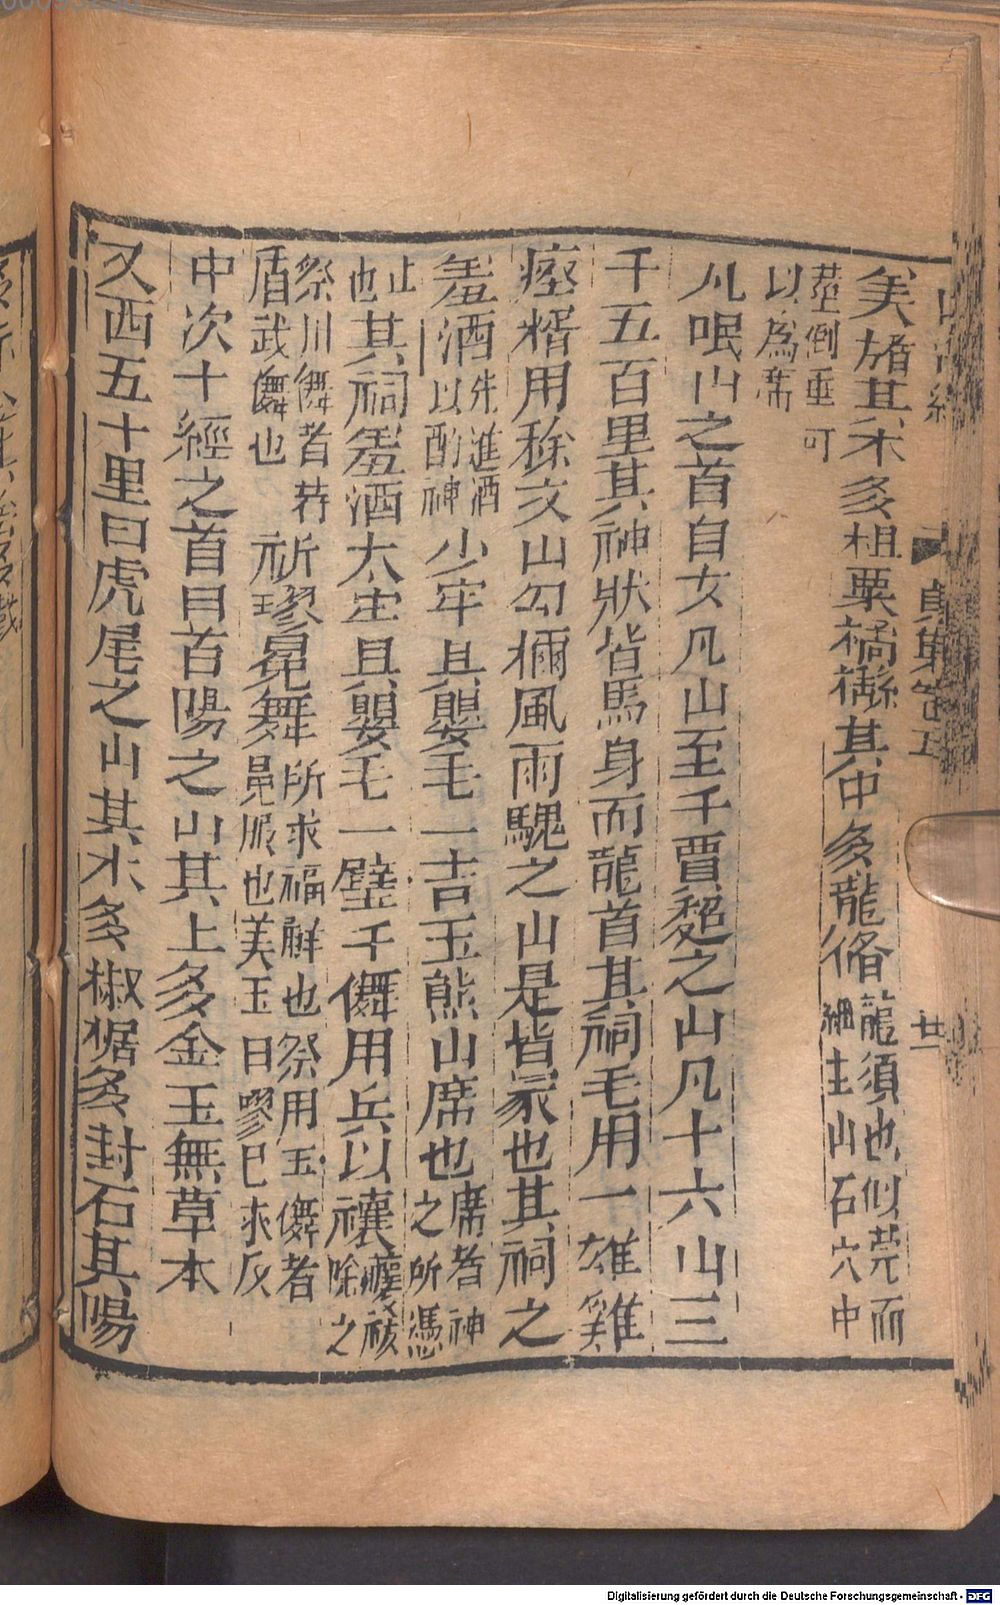 美赭其木多柤栗橘櫾其中多龍脩龍須也似莞而細生山石穴中
莖倒垂可以為席
凡岷山之首自女几山至于賈超之山凡十六山三
千五百里其神狀皆馬身而龍首其祠毛用一雄雞
瘞糈用稌文山勾檷風雨騩之山是皆冢也其祠之
羞酒先進酒以酌神少牢具嬰毛一吉玉熊山席也席者神之所憑
止也其祠羞酒太牢具嬰毛一璧干儛用兵以禳禳祓除之
祭川儛者持盾武儛也祈璆冕舞祈求福祥也祭用玉儛者冕服也美玉曰璆巳求反
中次十經之首曰首陽之山其上多金玉無草木
又西五十里曰虎尾之山其木多椒椐多封石其陽
廿
Digitalisierung gefördert durch die Deutsche Forschungsgemeinschaft - DFG